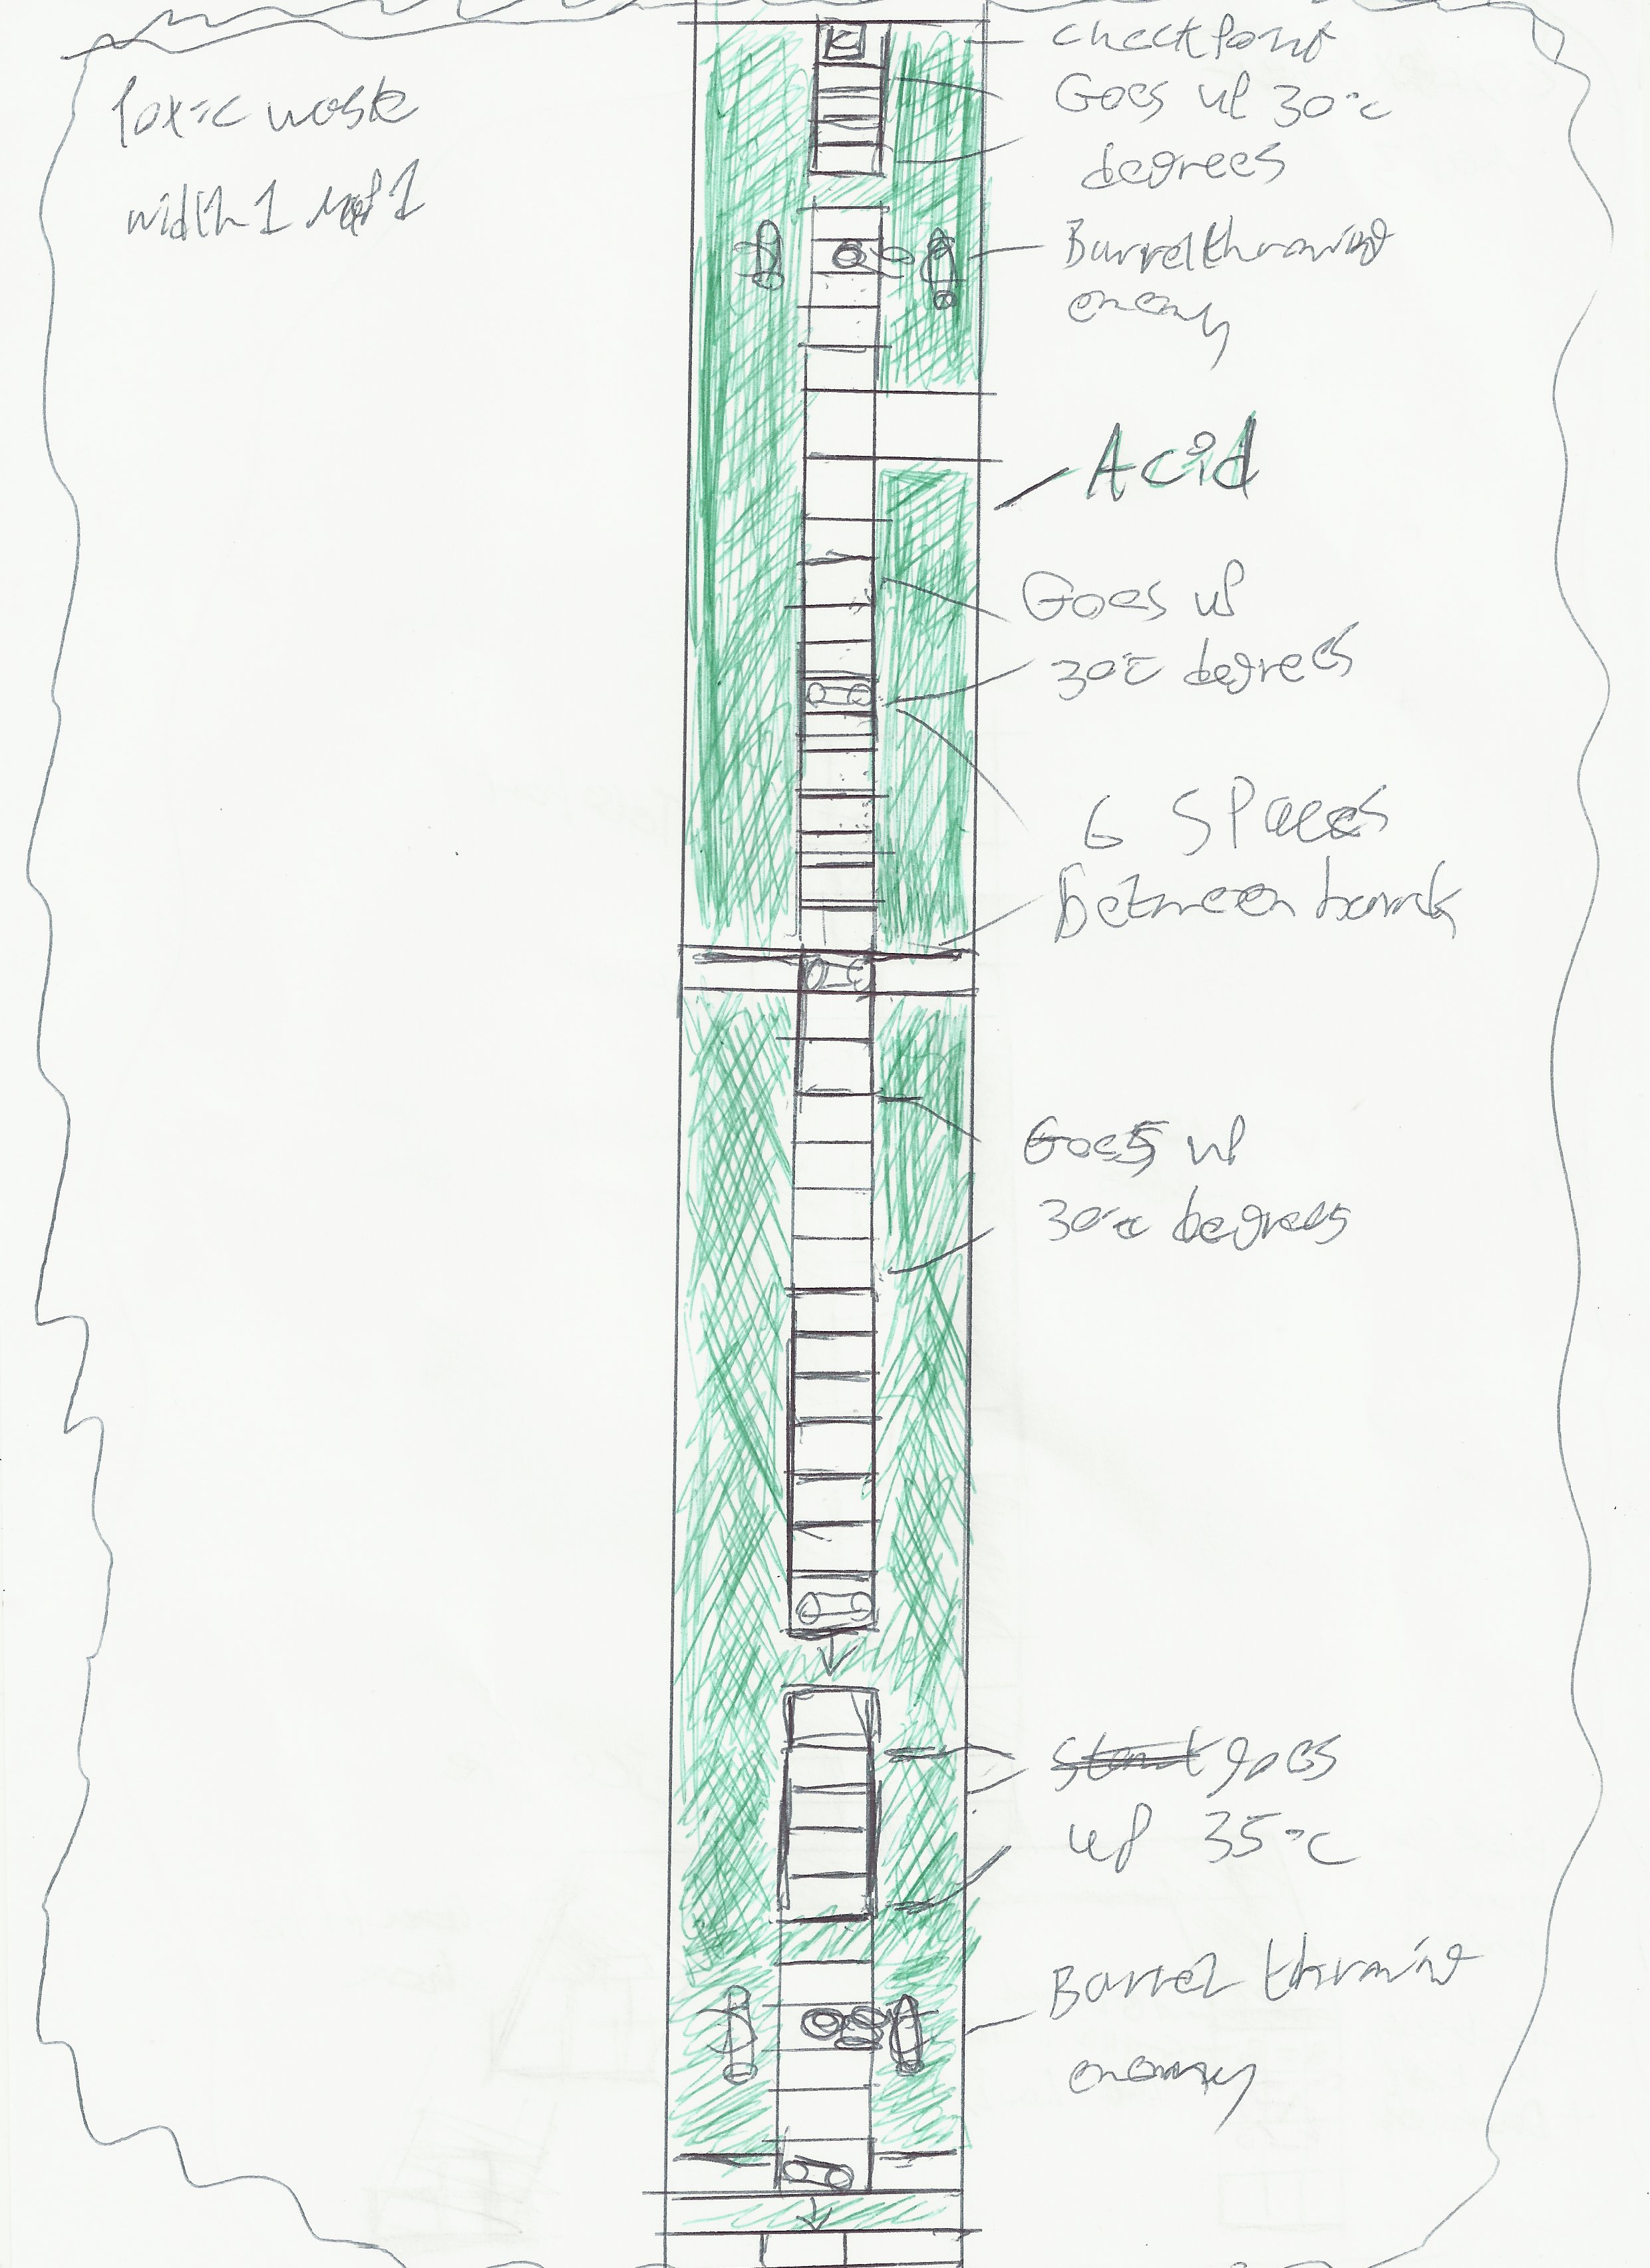 Toxic waste
width 1 Map 1
checkpoint
Goes up 30°c
degrees
Barrel throwing
enemy
Acid
Goes up
30°c degrees
6 Spaces
Between barrels
Goes up
30°c degrees
Start goes
up 35°c
Barrel throwing
enemy